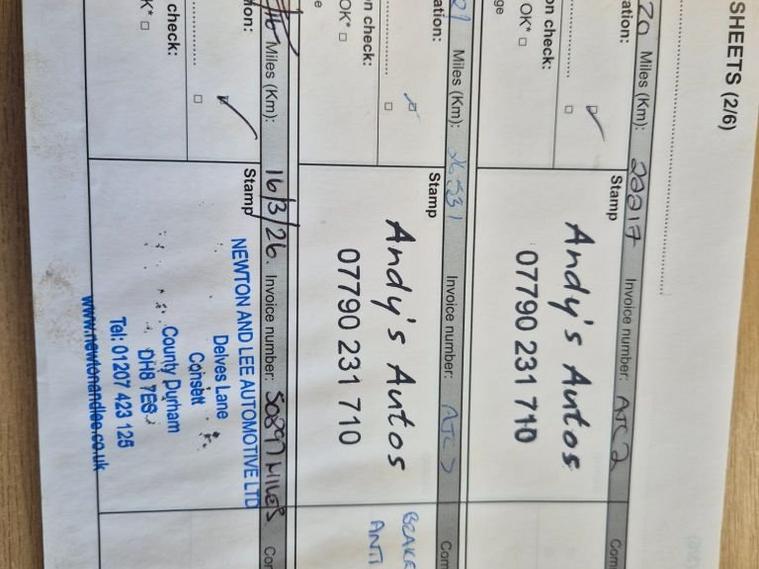 SHEETS (2/6)
20 Miles (Km): 22217 Invoice number: ATC 2 Com
ation:
on check:
OK*
Stamp
Andy's Autos
07790 231 710
21 Miles (Km): 26331 Invoice number: ATC 3 Com
ation:
on check:
OK*
Stamp
Andy's Autos
07790 231 710
BRAKE
ANTI
Miles (Km): 16/3/26. Invoice number: 50897 MILES Con
check:
K*
Stamp
NEWTON AND LEE AUTOMOTIVE LTD
Delves Lane
Consett
County Durham
DH8 7ES
Tel: 01207 423 125
www.newtonandlee.co.uk